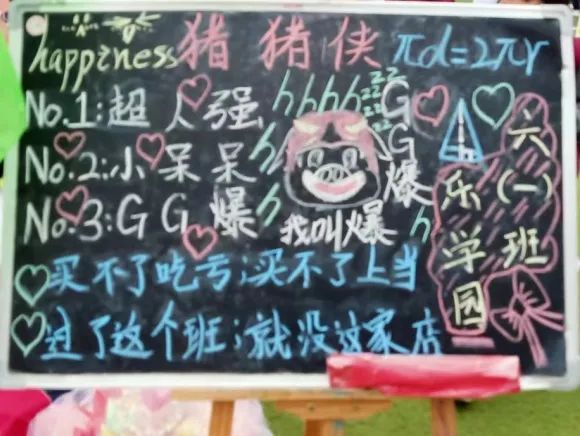 happiness 猪猪侠 πd=2πr
No.1:超人强 hhhh zzzz G
No.2:小呆呆 h G
No.3:GG爆 h 爆
我叫爆 h
六(一)班
乐学园
买不了吃亏;买不了上当
过了这个班;就没这家店